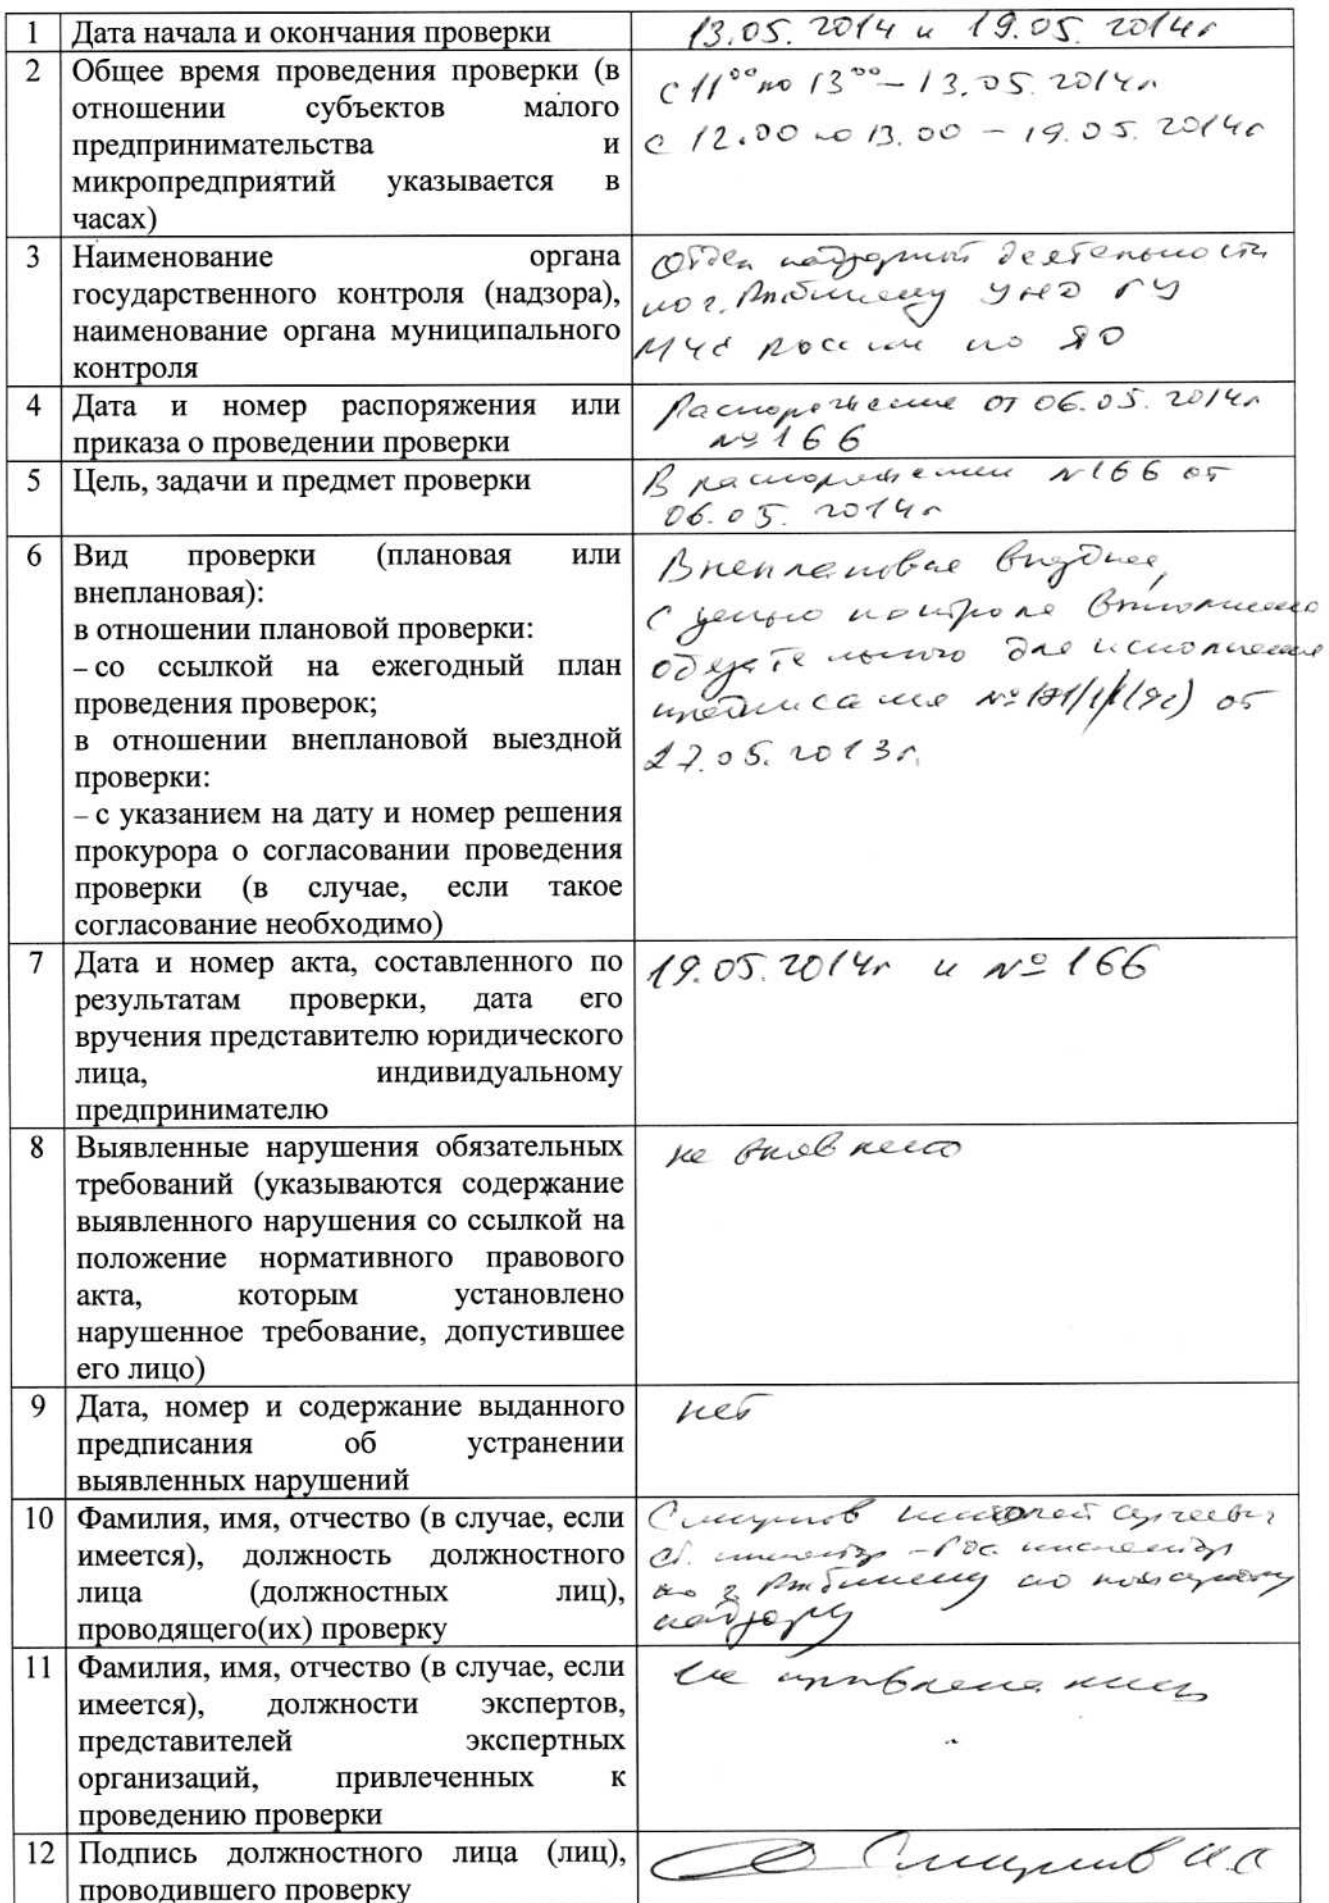 1 Дата начала и окончания проверки 13.05.2014 и 19.05.2014г
2 Общее время проведения проверки (в
отношении субъектов малого
предпринимательства и
микропредприятий указывается в
часах)
с 11⁰⁰ по 13⁰⁰ – 13.05.2014г
с 12.00 по 13.00 – 19.05.2014г
3 Наименование органа
государственного контроля (надзора),
наименование органа муниципального
контроля
Отдел надзорной деятельности
по г. Рыбинску УНД ГУ
МЧС России по ЯО
4 Дата и номер распоряжения или
приказа о проведении проверки
Распоряжение от 06.05.2014г
№ 166
5 Цель, задачи и предмет проверки
В распоряжении №166 от
06.05.2014г
6 Вид проверки (плановая или
внеплановая):
в отношении плановой проверки:
– со ссылкой на ежегодный план
проведения проверок;
в отношении внеплановой выездной
проверки:
– с указанием на дату и номер решения
прокурора о согласовании проведения
проверки (в случае, если такое
согласование необходимо)
Внеплановая выездная,
с целью контроля выполнения
обязательного для исполнения
предписания № от
27.05.2013г.
7 Дата и номер акта, составленного по
результатам проверки, дата его
вручения представителю юридического
лица, индивидуальному
предпринимателю
19.05.2014г и № 166
8 Выявленные нарушения обязательных
требований (указываются содержание
выявленного нарушения со ссылкой на
положение нормативного правового
акта, которым установлено
нарушенное требование, допустившее
его лицо)
не выявлено
9 Дата, номер и содержание выданного
предписания об устранении
выявленных нарушений
нет
10 Фамилия, имя, отчество (в случае, если
имеется), должность должностного
лица (должностных лиц),
проводящего(их) проверку
Смирнов Николай Сергеевич
ст. инспектор – гос. инспектор
по г. Рыбинску по пожарному
надзору
11 Фамилия, имя, отчество (в случае, если
имеется), должности экспертов,
представителей экспертных
организаций, привлеченных к
проведению проверки
Не
12 Подпись должностного лица (лиц),
проводившего проверку
Смирнов Н.С